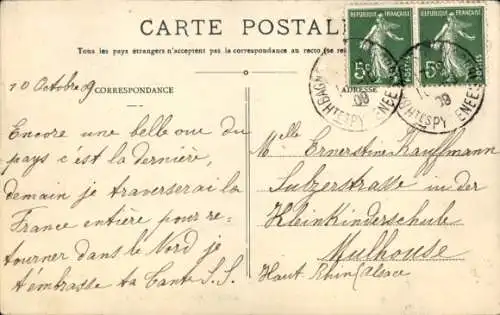 CARTE POSTALE
Tous les pays étrangers n'acceptent pas la correspondance au recto (se
REPUBLIQUE FRANÇAISE
5c POSTES
REPUBLIQUE FRANÇAISE
5c POSTES
09
09
HTESPYRENEES
10 Octobre 9
CORRESPONDANCE
ADRESSE
Encore une belle vue du
pays c'est la dernière,
demain je traverserai la
France entière pour re-
tourner dans le Nord je
t'embrasse ta Tante S.S.
Melle Ernestine Kauffmann
Sulzerstrasse in der
Kleinkinderschule
Mulhouse
Haut Rhin (Alsace